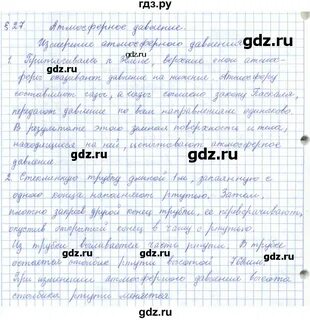 gdz.ru
§ 27. Атмосферное давление.
gdz.ru gdz.ru
Измерение атмосферного давления
1. Притягиваясь к Земле, верхние слои атмос-
феры оказывают давление на нижние. Атмосферу
gdz.ru gdz.ru
составляют газы, а газы согласно закону Паскаля,
передают давление по всем направлениям одинаково.
В результате этого земная поверхность и тела,
gdz.ru gdz.ru
находящиеся на ней, испытывают атмосферное
давление.
2. Стеклянную трубку длиной 1м, запаянную с
gdz.ru gdz.ru
одного конца наполняют ртутью. Затем,
плотно закрыв другой конец трубки, ее переворачивают,
опустив открытый конец в чашу с ртутью.
gdz.ru gdz.ru
Из трубки выливается часть ртути. В трубке
остается столбик ртути высотой 760мм.
При изменении атмосферного давления высота
gdz.ru gdz.ru
столбика ртути меняется.